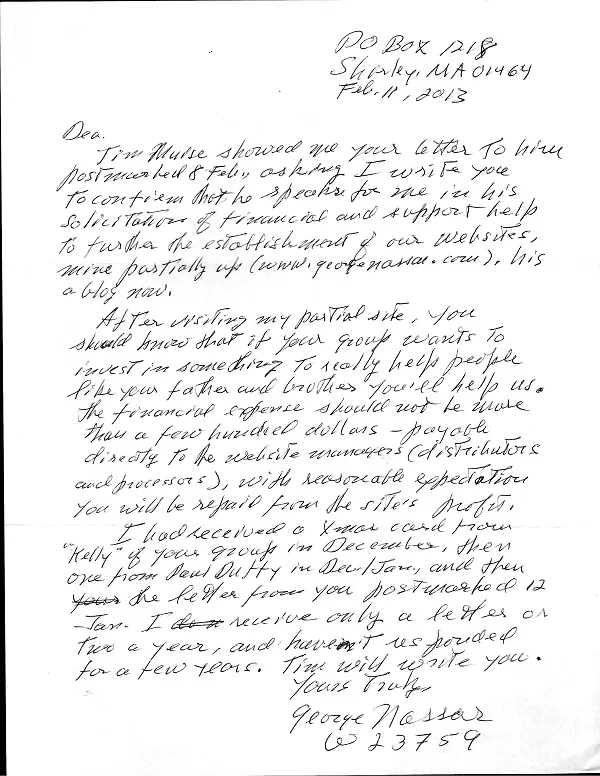 PO Box 1218
Shirley, MA 01464
Feb. 11, 2013
Dea.
Tim Muise showed me your letter to him
postmarked 8 Feb., asking I write you
to confirm that he speaks for me in his
solicitation of financial and support help
to further the establishment of our websites,
mine partially up (www.georgenassar.com), his
a blog now.
After visiting my partial site, you
should know that if your group wants to
invest in something to really help people
like your father and brother you'll help us.
The financial expense should not be more
than a few hundred dollars – payable
directly to the website managers (distributors
and processors), with reasonable expectation
you will be repaid from the site's profit.
I had received a Xmas card from
"Kelly" of your group in December, then
one from Paul Duffy in Dec/Jan, and then
your the letter from you postmarked 12
Jan. I don receive only a letter or
two a year, and haven't responded
for a few years. Tim will write you.
Yours Truly,
George Nassar
W 23759